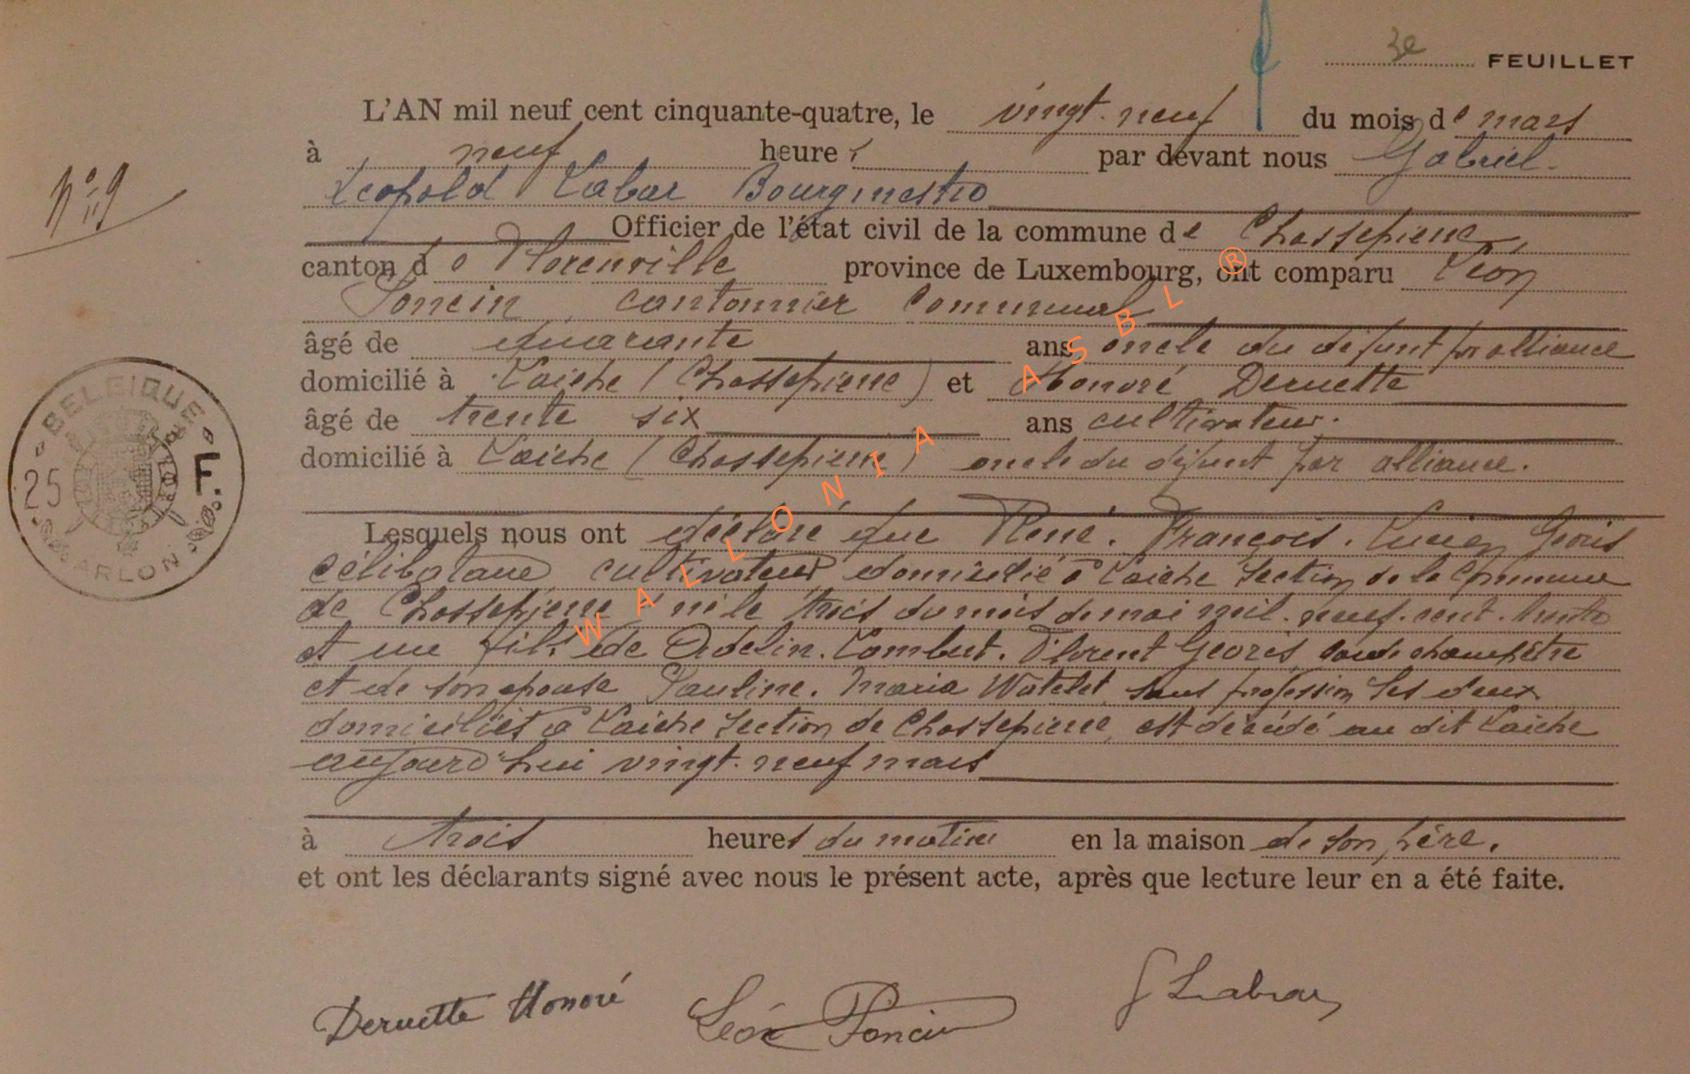 3e FEUILLET
L'AN mil neuf cent cinquante-quatre, le vingt-neuf du mois de mars
à neuf heures par devant nous Gabriel
Nº 9
Léopold Labar Bourgmestre
Officier de l'état civil de la commune de Chassepierre,
canton de Florenville province de Luxembourg, ont comparu Léon
Poncin, cantonnier communal
âgé de quarante ans oncle du défunt par alliance
domicilié à Laiche (Chassepierre) et Honoré Deruette
âgé de trente six ans cultivateur.
domicilié à Laiche (Chassepierre) oncle du défunt par alliance.
BELGIQUE
25 F.
ARLON
WALLONIA ASBL ®
Lesquels nous ont déclaré que René. François. Lucien Georis
célibataire cultivateur domicilié à Laiche section de la Commune
de Chassepierre né le trois du mois de mai mil. neuf. cent. trente
et un fils de Adelin. Lambert. Florent Georis garde champêtre
et de son épouse Pauline. Maria Watelet sans profession les deux
domiciliés à Laiche section de Chassepierre, est décédé au dit Laiche
aujourd'hui vingt-neuf mars
à trois heures du matin en la maison de son père.
et ont les déclarants signé avec nous le présent acte, après que lecture leur en a été faite.
Deruette Honoré Léon Poncin G Labar